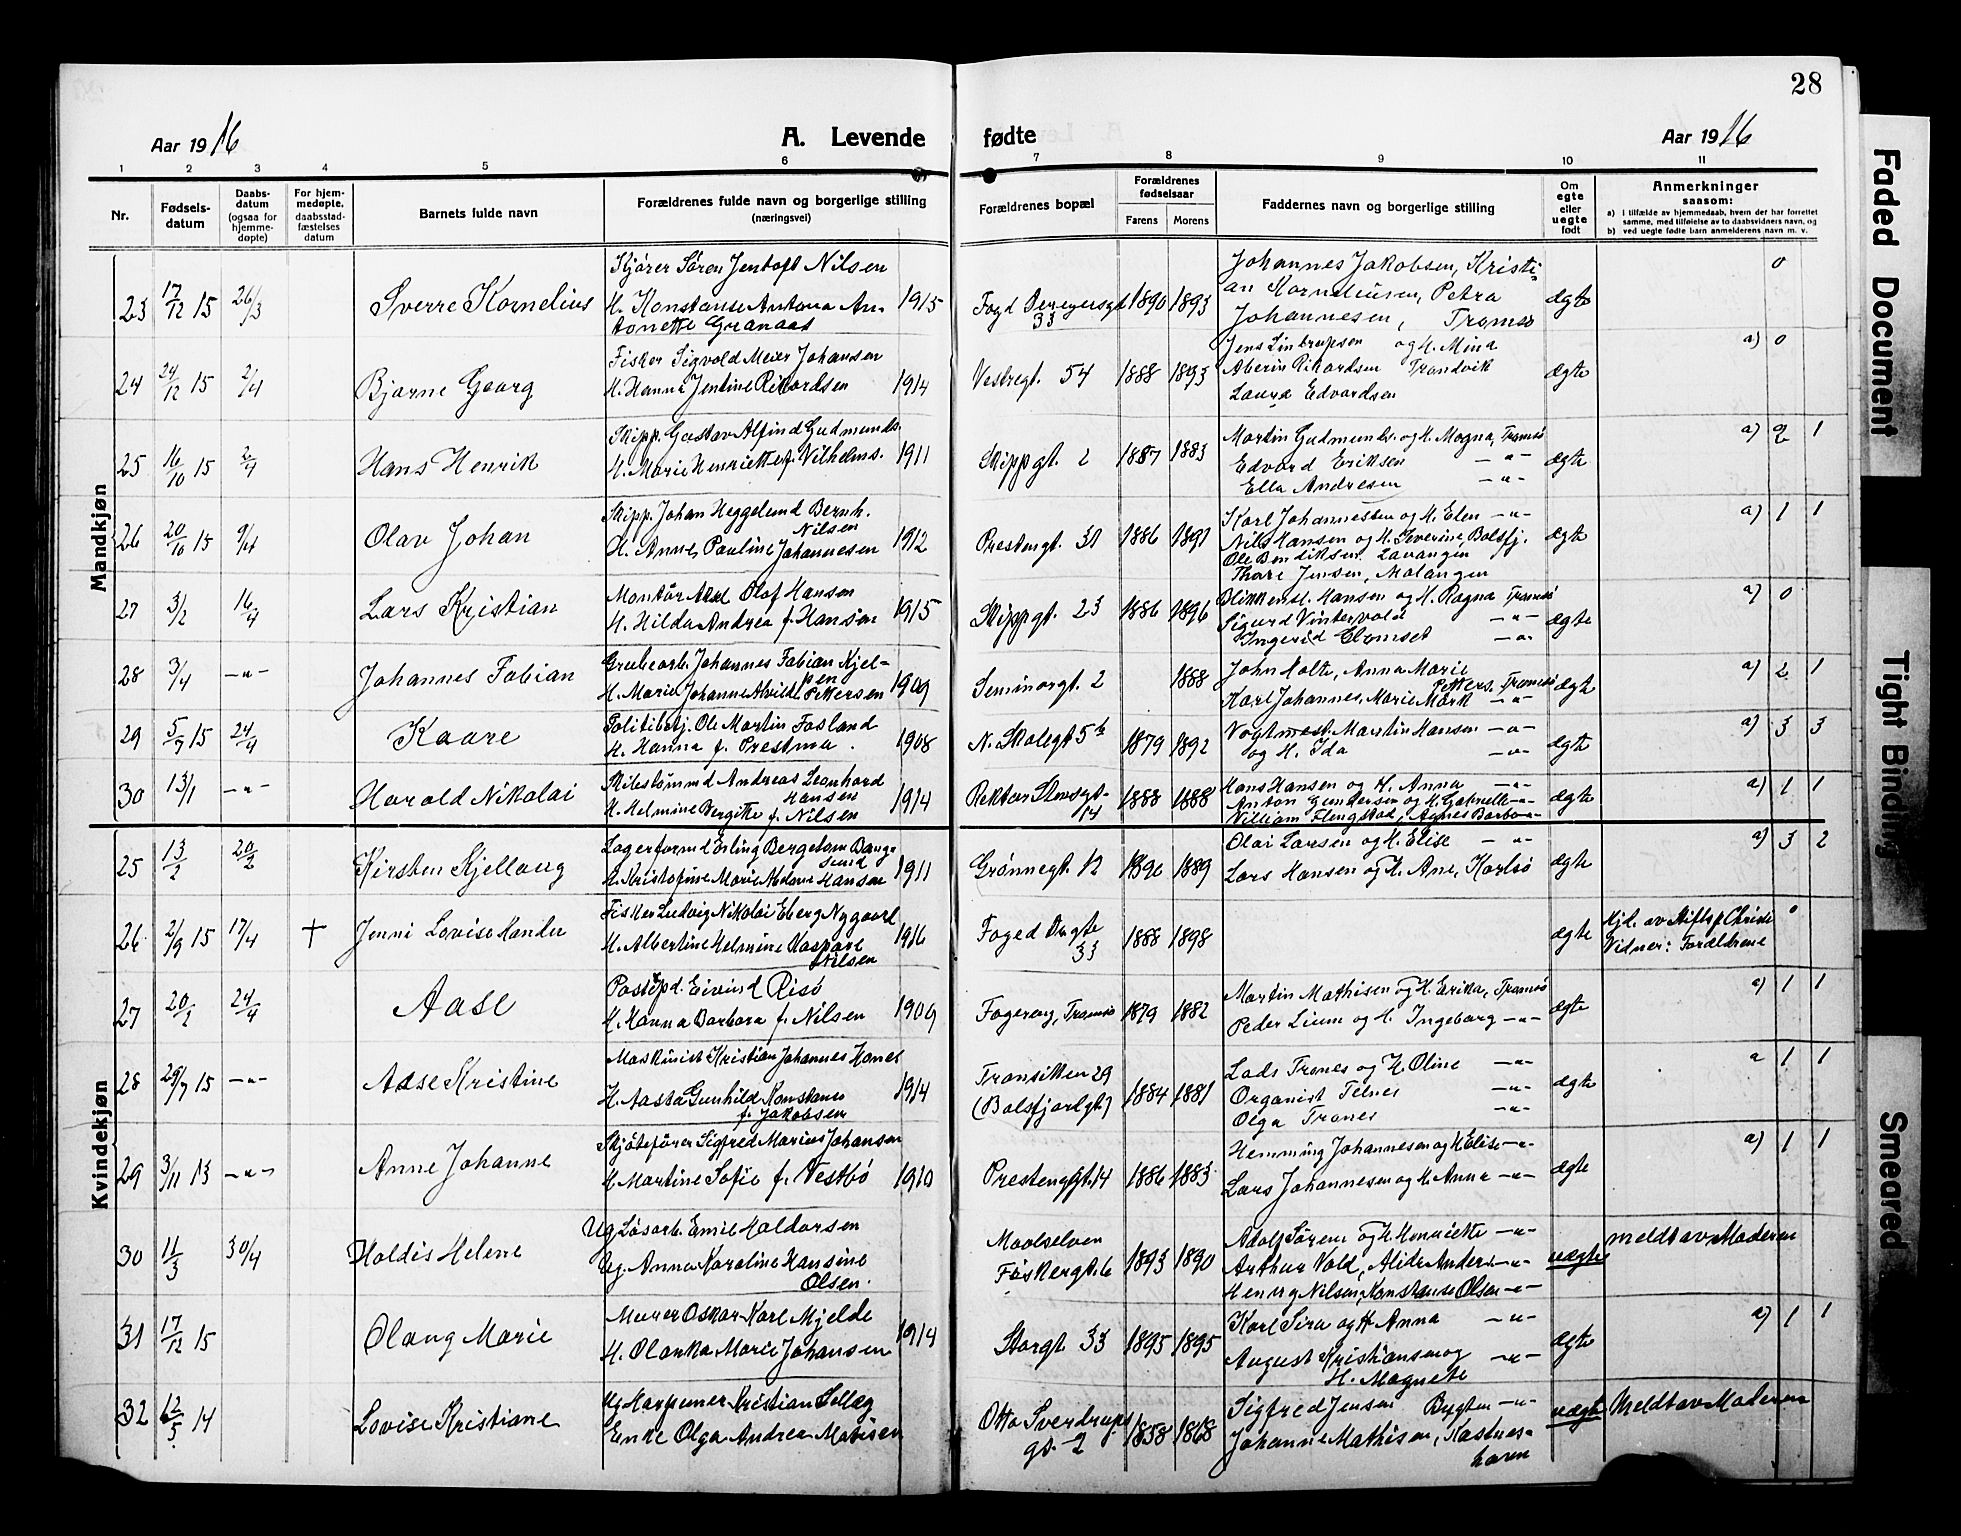 28
Aar 1916
A. Levende
fødte
Aar 1916
1 2 3 4 5 6 7 8 9 10 11
Nr.
Fødsels-
datum
Daabs-
datum
(ogsaa for
hjemme-
døpte)
For hjem-
medøpte,
daabsstad-
fæstelses
datum
Barnets fulde navn
Forældrenes fulde navn og borgerlige stilling
(næringsvei)
Forældrenes bopæl
Forældrenes
fødselsaar
Farens Morens
Faddernes navn og borgerlige stilling
Om
egte
eller
uegte
født
Anmerkninger
saasom:
a) I tilfælde av hjemmedaab, hvem der har forrettet
samme, med tilføielse av to daabsvidners navn, og
b) ved uegte fødte barn anmelderens navn m. v.
Mandkjøn
23 17/12 15 26/3 Sverre Kornelius
Skjører Søren Jentoft Nilsen
H. Konstanse Antona An-
tonette Granaas 1915
33 1890 1893
Johannes Jakobsen, Kristi-
an Korneliusen, Petra
Johannesen, Tromsø
ægte 0
24 24/12 15 2/4 Bjarne Georg
Fisker Sigvold Meier Johansen
H. Hanna Jentine Rikardsen 1914
Vestregt. 54 1888 1893
og H. Mina
Rikardsen Trondvik
Laura Edvardsen
ægte a) 0
25 16/10 15 2/4 Hans Henrik
Skipp. Gustav Alfind Gudmunds.
H. Marie Henriette f. Vilhelms. 1911
Skippgt. 2 1887 1883
Martin Gudmunds. og H. Magna, Tromsø
Edvard Eriksen -"-
Ella Andresen -"-
ægte a) 2 1
26 20/10 15 9/4 Olav Johan
Skipp. Johan Heggelund Bernh.
Nilsen
H. Anne Pauline Johannesen 1912
Prestengt. 31 1886 1891
Karl Johannessen og H. Elen -"-
Nils Hansen og H. Severine, Balsfj.
Ole Bendiksen Lavangen
Thore Jensen, Malangen
ægte a) 1 1
27 3/2 16/4 Lars Kristian
Montør Axel Olof Hansen
H. Hilda Andrea f. Hansen 1915
Skippgt. 23 1886 1896
Blikkensl. Hansen og H. Ragna Tromsø
Sigurd Vintervold -"-
Ingerid -"-
ægte a) 0
28 3/4 -"- Johannes Fabian
Grubearb. Johannes Fabian Kjel-
sen
H. Marie Johanne Alvilde Pettersen 1909
Seminargt. 2 1888
John Holte, Anna Marie
Petters. Tromsø
Karl Johannes, Marie Mørk -"-
ægte a) 2 1
29 5/9 15 24/4 Kaare
Politibetj. Ole Martin Fosland
H. Hanna f. Prestmo 1908
N. Skolegt 5b 1879 1892
Vogtmest. Martin Hansen -"-
og H. Ida -"-
ægte a) 3 3
30 13/1 -"- Harald Nikolai
Andreas Leonhard
Hansen
H. Helmine Bergitte f. Nilsen 1914
Rektor Steensgt.
14 1888 1888
Hans Hansen og H. Anna -"-
Anton Gundersen og H. Gabrielle -"-
William Flengstad, Agnes Barbo -"-
ægte a) 1 1
Kvindekjøn
25 13/2 20/2 Kirsten Kjellaug
Lagerformd Erling Bergetom Baug-
sund
H. Kristofine Marie Abelone Hansen 1911
Grønnegt. 12 1890 1889
Olai Larsen og H. Elise -"-
Lars Hansen og H. Ane, Karlsø
ægte a) 3 2
26 2/9 15 17/4 + Jenni Lovise Kander
Fisker Ludvig Nikolai Eberg Nygaard
H. Albertine Helmine Kaspara
Nilsen 1916
Foged Drgte
33 1888 1898
ægte
Hjd. av Stiftsp Christie
Vidner: Forældrene
0
27 20/2 24/4 Aase
Postexpd. Eivind Risø
H. Hanna Barbara f. Nilsen 1909
Fogereng, Tromsø 1879 1882
Martin Mathisen og H. Erika, Tromsø
Peder Lium og H. Ingeborg -"-
ægte a) 1 1
28 29/7 15 -"- Aase Kristine
Maskinist Kristian Johannes Hanes
H. Aasta Gunhild Konstanse
f. Jakobsen 1914
Transitten 29
(Balsfjordgt) 1884 1881
Lads Tranes og H. Oline -"-
Organist Telnes -"-
Olga Tranes -"-
ægte a 1 1
29 3/11 13 -"- Anne Johanne
Skjøtefører Sigfred Marius Johansen
H. Martine Sofie f. Vestbø 1910
Prestenggt. 14 1886 1883
Hemming Johannesen og H. Elise -"-
Lars Johannesen og H. Anna -"-
ægte a) 1 1
30 11/3 30/4 Haldis Helene
Ug. Løsarb. Emil Haldorsen
Ug. Anna Karoline Hansine
Olsen
Maalselven
Fiskergt. 6 1893 1890
Adolf Sørens og H. Henriette -"-
Arthur Vold, Alide Anders. -"-
Henrig Nilsen, Konstanse Olsen -"-
uægte meldt av Moderen
31 17/12 15 Olaug Marie
Murer Oskar Karl Mjelde
H. Olanka Marie Johansen 1914
Storgt 33 1895 1895
Karl Sira og H Anna -"-
August Kristiansen og -"-
H. Magnete
ægte a) 1 1
32 12/5 14 Lovise Kristiane
Ug Harpuner Kristian Sellæg
Enke Olga Andrea Matisen
Otto Sverdrups
gt. 2 1858 1868
Sigfred Jensen Bygten -"-
Johanne Mathisen, Kastnes-
havn
uægte Meldt av Moderen
Faded Document
Tight Binding
Smeared